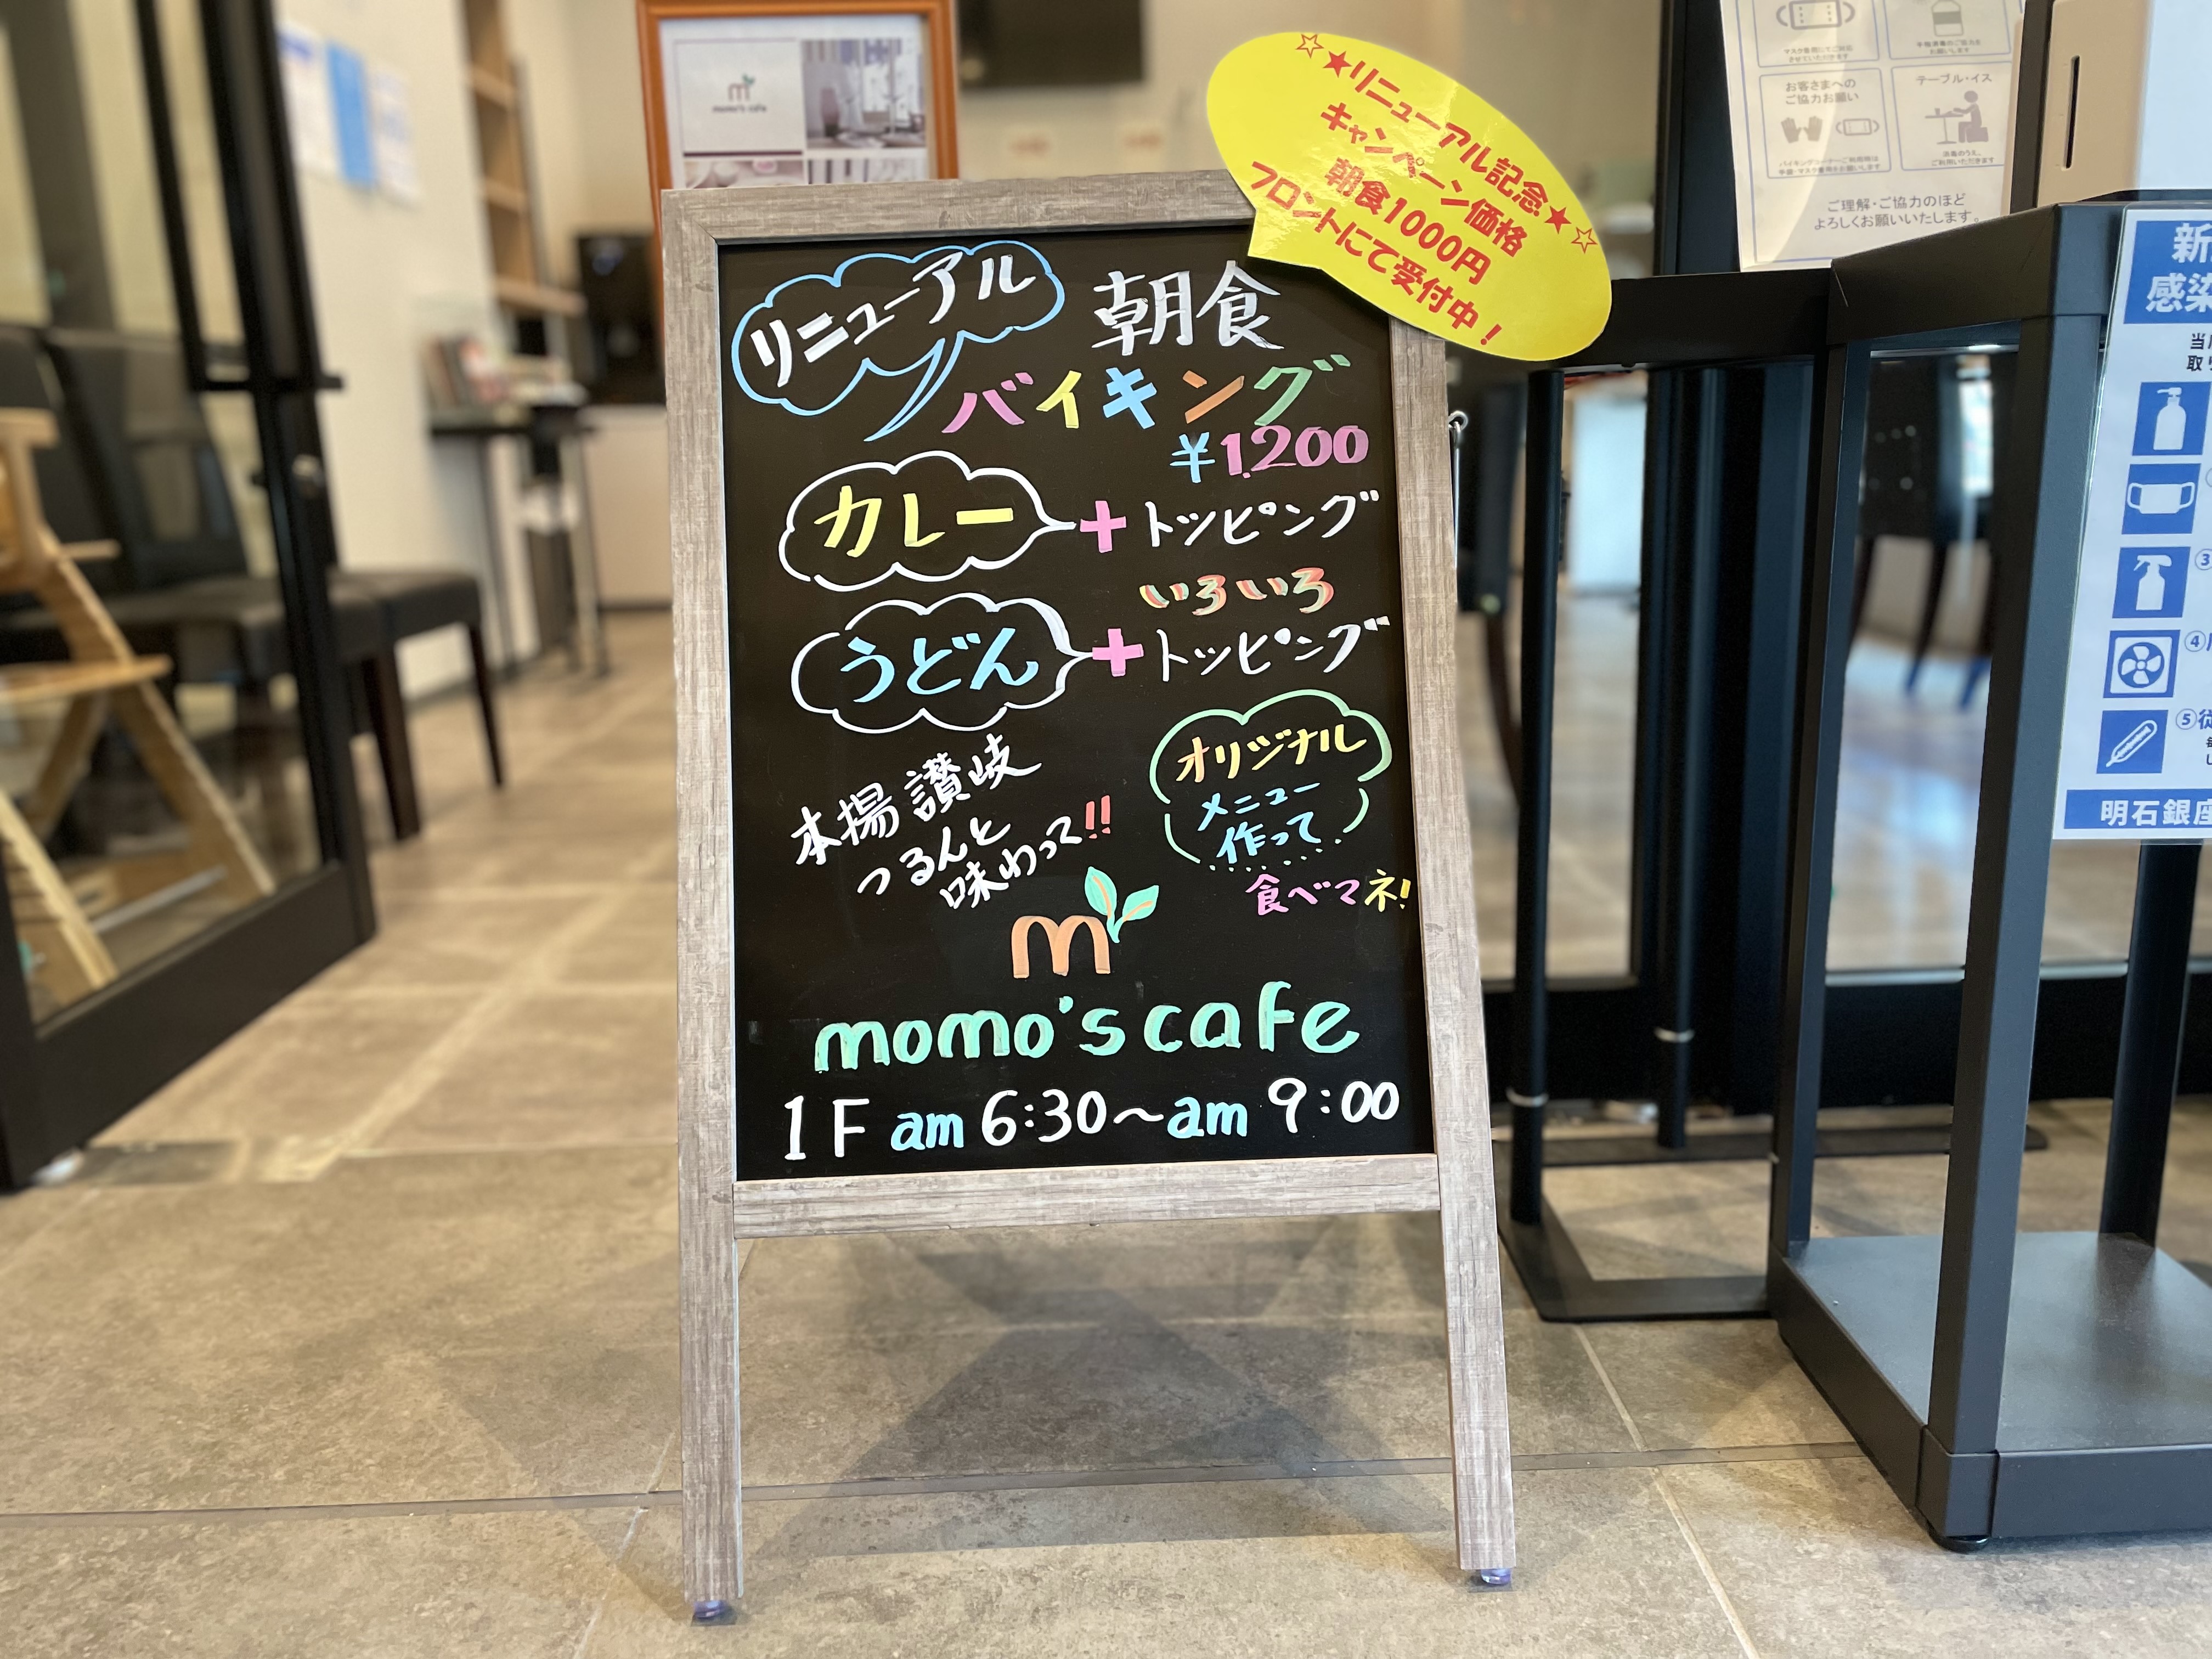 momo's cafe
☆★リニューアル記念★☆
キャンペーン価格
朝食1000円
フロントにて受付中！
リニューアル
朝食
バイキング
¥1,200
カレー+トッピング
いろいろ
うどん+トッピング
本場讃岐
つるんと
味わって!!
オリジナル
メニュー
作って
食べマネ!
m
momo's cafe
1F am 6:30〜am 9:00
お客さまへの
ご協力お願い
テーブル・イス
ご理解・ご協力のほど
よろしくお願いいたします。
新
感染
当
取り
③
④
⑤従
明石銀座